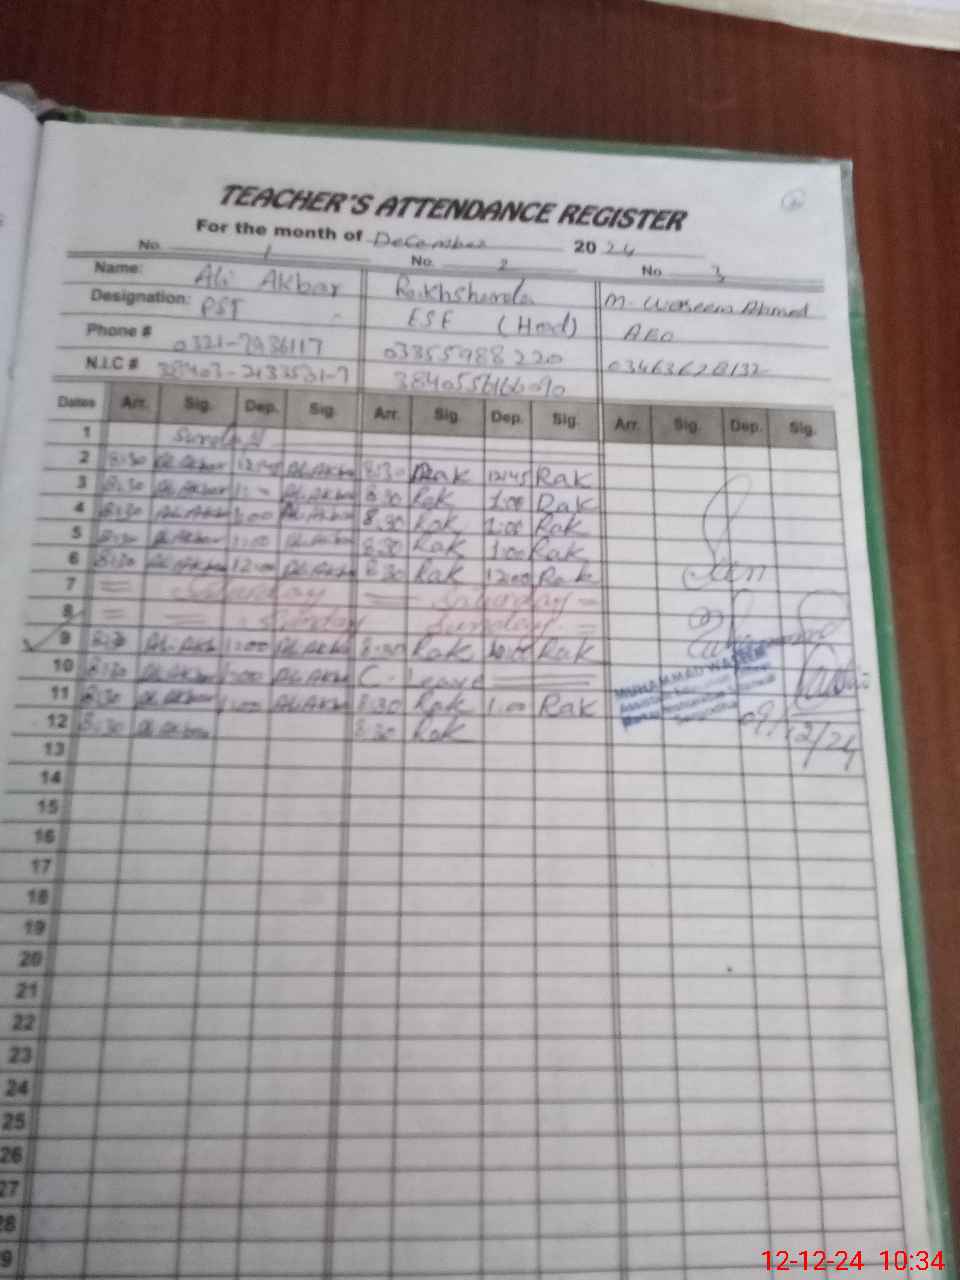 TEACHER'S ATTENDANCE REGISTER
For the month of December 2024
No. 1 No. 2 No 3
Name: Ali Akbar Rakhshanda M. Waseem Ahmed
Designation: PST ESE (Head) AEO
Phone # 03355988220 03463628132
N.I.C #
Dates Arr. Sig. Dep. Sig. Arr. Sig. Dep. Sig. Arr. Sig. Dep. Sig.
1 Sunday
2 8:30 Ali Akbar 12:45 Ali Akbar 8:30 Rak 12:45 Rak
3 8:30 Ali Akbar 8:30 Rak 1:00 Rak
4 8:30 Ali Akbar 1:00 Ali Akbar 8:30 Rak 1:00 Rak
5 8:30 Ali Akbar 1:00 Ali Akbar 8:30 Rak 1:00 Rak
6 8:30 Ali Akbar 12:00 Ali Akbar 8:30 Rak 12:00 Rak
7 = Saturday = Saturday =
8 = = Sunday Sunday =
9 8:30 Ali Akb 1:00 Ali Akb 8:30 Rak Rak
10 8:30 Ali Akbar 1:00 Ali Akb C. Leave
MUHAMMAD WASEEM
11 8:30 Ali Akbar 1:00 Ali Akb 8:30 Rak 1.00 Rak
09/12/24
12 8:30 Ali Akbar 8:30 Rak
13
14
15
16
17
18
19
20
21
22
23
24
25
26
27
28
9
12-12-24 10:34